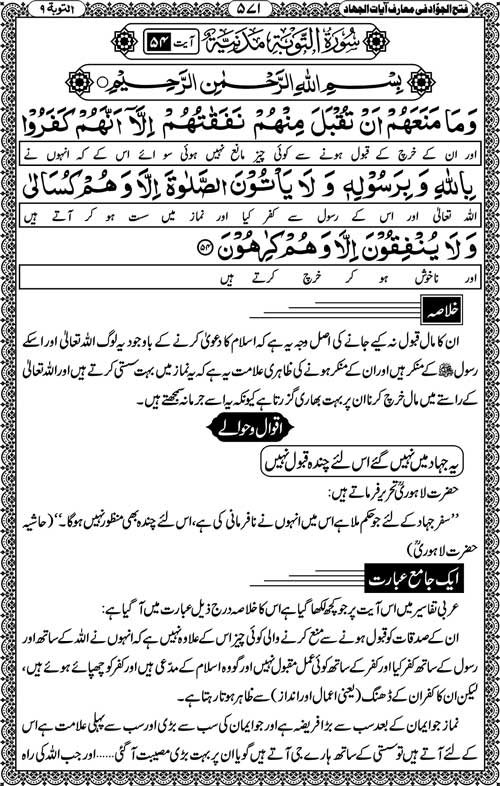 فتح الجوّاد فی معارف آیات الجہاد ۵۷۱ التوبة ۹
سُوْرَةُ التَّوْبَةِ مَدَنِيَّةٌ آیت ۵۴
بِسْمِ اللهِ الرَّحْمٰنِ الرَّحِيْمِ
وَمَا مَنَعَهُمْ اَنْ تُقْبَلَ مِنْهُمْ نَفَقٰتُهُمْ اِلَّآ اَنَّهُمْ كَفَرُوْا
اور ان کے خرچ کے قبول ہونے سے کوئی چیز مانع نہیں ہوئی سوائے اس کے کہ انہوں نے
بِاللهِ وَبِرَسُوْلِهٖ وَلَا يَاْتُوْنَ الصَّلٰوةَ اِلَّا وَهُمْ كُسَالٰى
اللہ تعالیٰ اور اس کے رسول سے کفر کیا اور نماز میں سست ہو کر آتے ہیں
وَلَا يُنْفِقُوْنَ اِلَّا وَهُمْ كٰرِهُوْنَ ﴿۵۴﴾
اور ناخوش ہو کر خرچ کرتے ہیں
خلاصہ
ان کا مال قبول نہ کیے جانے کی اصل وجہ یہ ہے کہ اسلام کا دعویٰ کرنے کے باوجود یہ لوگ اللہ تعالیٰ اور اسکے
رسول ﷺ کے منکر ہیں اور ان کے منکر ہونے کی ظاہری علامت یہ ہے کہ یہ نماز میں بہت سستی کرتے ہیں اور اللہ تعالیٰ
کے راستے میں مال خرچ کرنا ان پر بہت بھاری گزرتا ہے کیونکہ یہ اسے جرمانہ سمجھتے ہیں۔
اقوال و حوالے
یہ جہاد میں نہیں گئے اس لئے چندہ قبول نہیں
حضرت لاہوریؒ تحریر فرماتے ہیں:
’’سفر جہاد کے لئے جو حکم ملا ہے اس میں انہوں نے نافرمانی کی ہے، اس لئے چندہ بھی منظور نہیں ہوگا۔‘‘ (حاشیہ
حضرت لاہوریؒ)
ایک جامع عبارت
عربی تفاسیر میں اس آیت پر جو کچھ لکھا گیا ہے اس کا خلاصہ درج ذیل عبارت میں آ گیا ہے:
ان کے صدقات کو قبول ہونے سے منع کرنے والی کوئی چیز اس کے علاوہ نہیں ہے کہ انہوں نے اللہ کے ساتھ اور
رسول کے ساتھ کفر کیا اور کفر کے ساتھ کوئی عمل مقبول نہیں اور گو وہ اسلام کے مدّعی ہیں اور کفر کو چھپائے ہوئے ہیں،
لیکن ان کا کفر ان کے ڈھنگ (یعنی اعمال اور انداز) سے ظاہر ہوتا رہتا ہے۔
نماز جو ایمان کے بعد سب سے بڑا فریضہ ہے اور جو ایمان کی سب سے بڑی اور سب سے پہلی علامت ہے اس
کے لئے آتے ہیں تو سستی کے ساتھ ہارے جی آتے ہیں گویا ان پر بہت بڑی مصیبت آ گئی......اور جب اللہ کی راہ